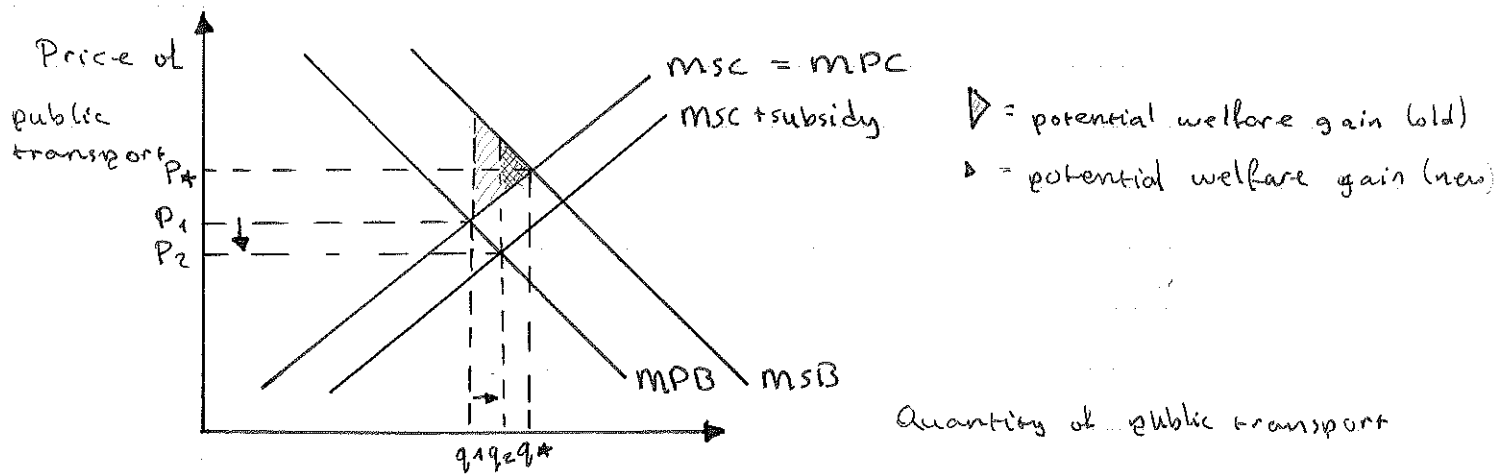 Price of
public
transport
MSC = MPC
MSC + subsidy
= potential welfare gain (old)
= potential welfare gain (new)
P*
P1
P2
MPB
MSB
q1 q2 q*
Quantity of public transport